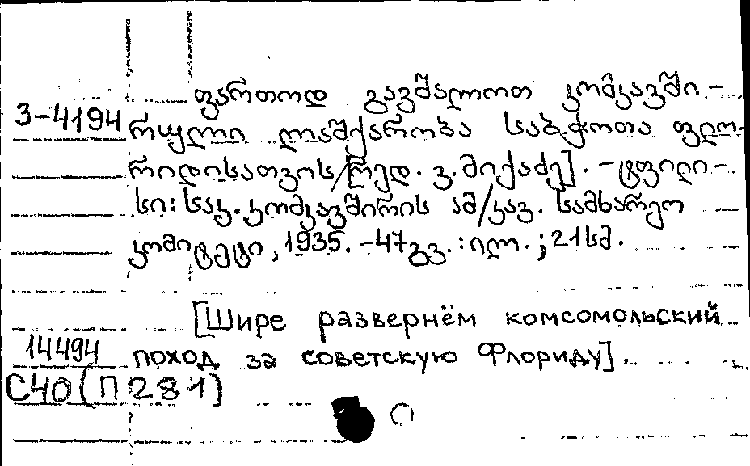 ფართოდ გავშალოთ კომკავში-
3-4194 რული ლაშქრობა საბჭოთა ფლო-
რიდისათვის/[რედ. ვ. მიქაძე]. - ტფილი-
სი: საკ. კომკავშირის ამ/კავ. სამხარეო
კომიტეტი, 1935. - 47 გვ. : ილ. ; 21 სმ.
[Шире развернём комсомольский
14494 поход за советскую Флориду].
С40(П281)